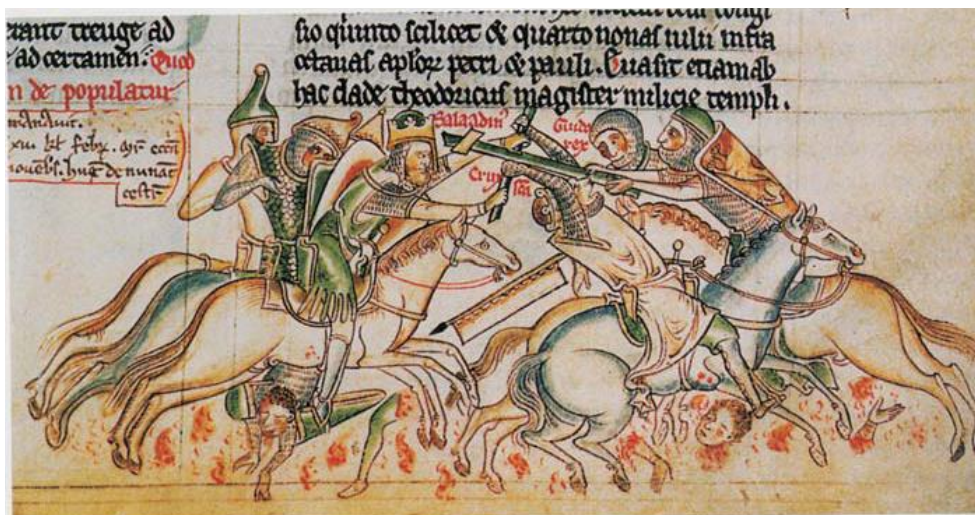 erant treuge ad
e ad certamen. Quod
m de populatur
mandavit.
xiii kl febr.
novebs. hug de nunat
cestr
sio quinto scilicet & quarto nonas iulii infra
octavas aplor petri & pauli. Evasit etiam ab
hac clade theodoricus magister milicie templi.
Saladin
Guido
rex
Crux
sca